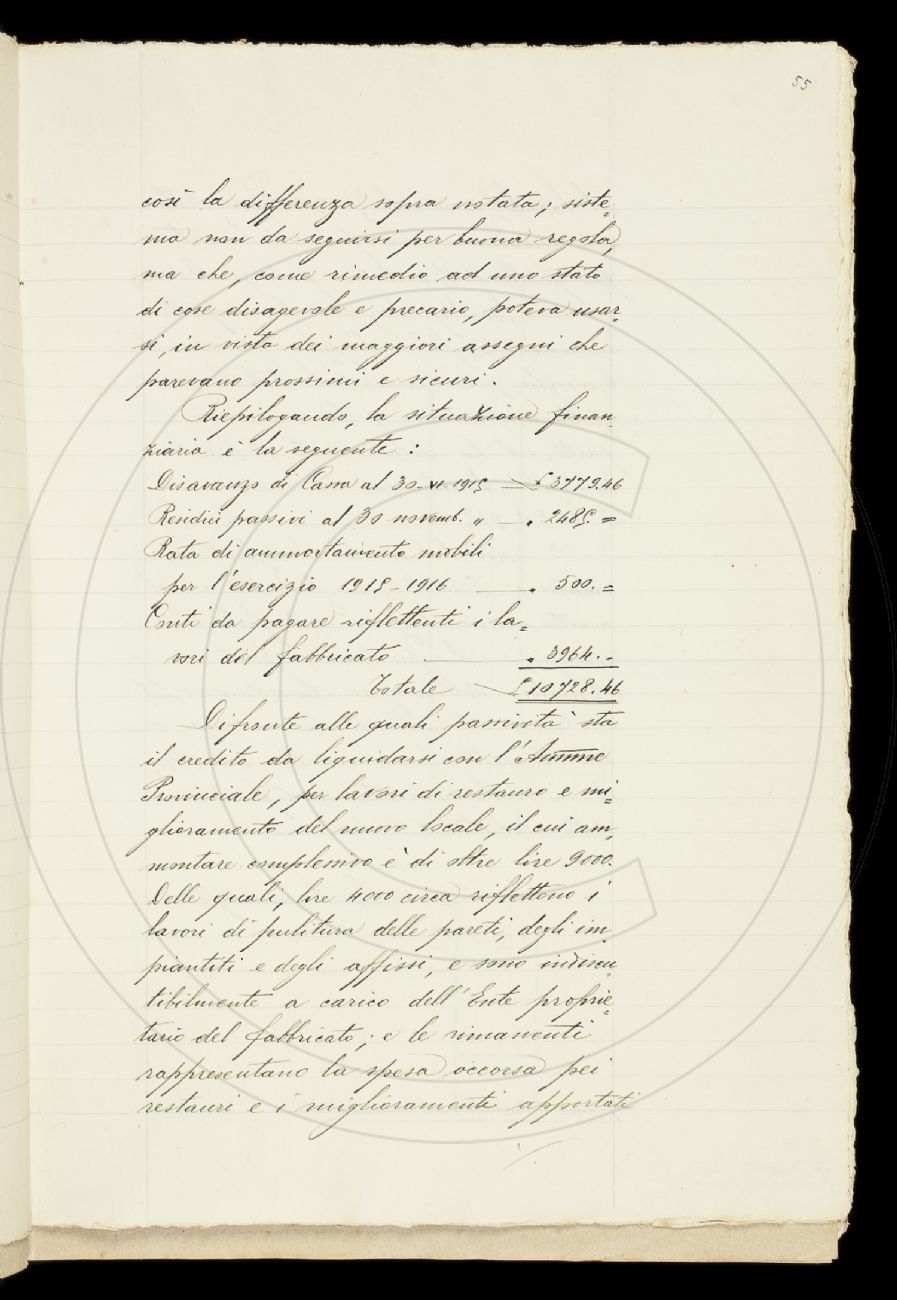 55
così la differenza sopra notata; siste=
ma non da seguirsi per buona regola,
ma che, come rimedio ad uno stato
di cose disagevole e precario, poteva usar=
si, in vista dei maggiori assegni che
parevano prossimi e sicuri.
Riepilogando, la situazione finan=
ziaria è la seguente:
Disavanzo di Cassa al 30-VI-1915 — £ 3779.46
Residui passivi al 30 novemb. " — " 2485. =
Rata di ammortamento mobili
per l'esercizio 1915-1916 — " 500. =
Conti da pagare riflettenti i la=
vori del fabbricato — " 3964. -
Totale — £ 10728.46
Difronte alle quali passività sta
il credito da liquidarsi con l'Amm.ne
Provinciale, per lavori di restauro e mi=
glioramento del nuovo locale, il cui am=
montare complessivo è di oltre lire 9000.
Delle quali, lire 4000 circa riflettono i
lavori di pulitura delle pareti, degli im=
piantiti e degli affissi, e sono indiscu=
tibilmente a carico dell'Ente proprie=
tario del fabbricato; e le rimanenti
rappresentano la spesa occorsa pei
restauri e i miglioramenti apportati